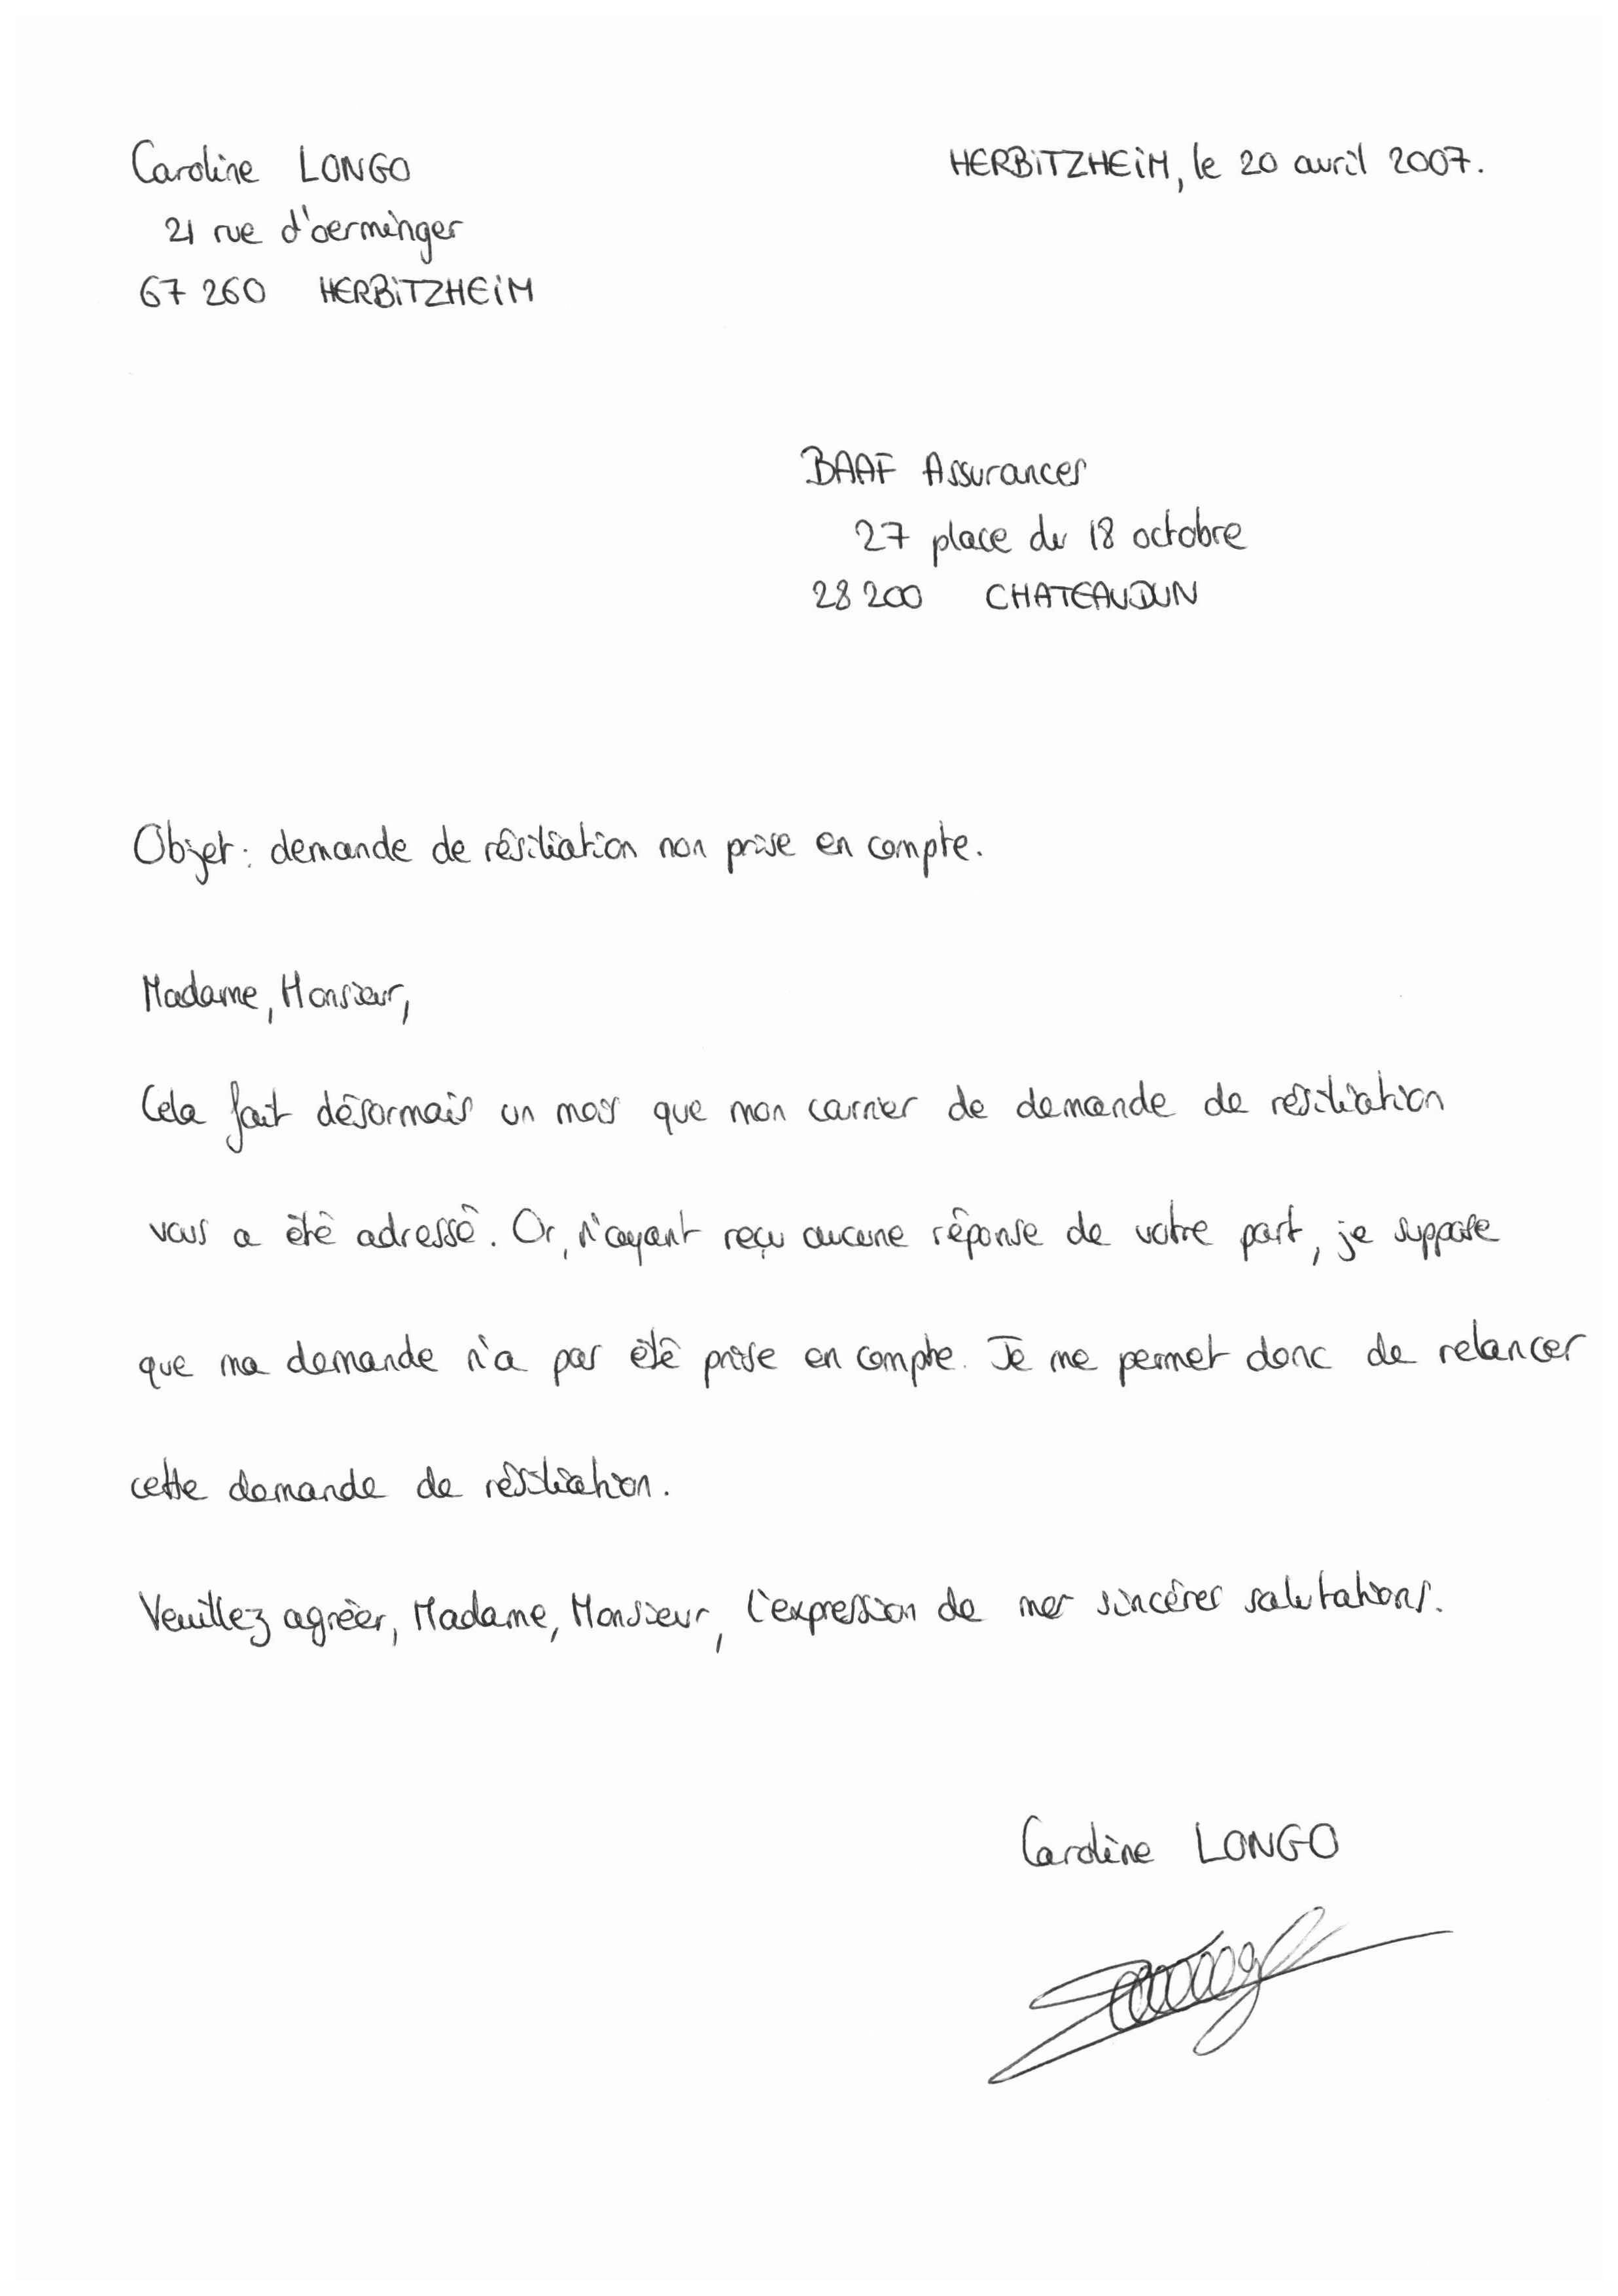 Caroline LONGO
HERBiTZHEiM, le 20 avril 2007.
21 rue d'oerminger
67 260 HERBiTZHEiM
BAAF Assurances
27 place du 18 octobre
28 200 CHATEAUDUN
Objet : demande de résiliation non prise en compte.
Madame, Monsieur,
Cela fait désormais un mois que mon carrier de demande de résiliation
vous a été adressé. Or, n'ayant reçu aucune réponse de votre part, je suppose
que ma demande n'a pas été prise en compte. Je me permet donc de relancer
cette demande de résiliation.
Veuillez agréer, Madame, Monsieur, l'expression de mes sincères salutations.
Caroline LONGO